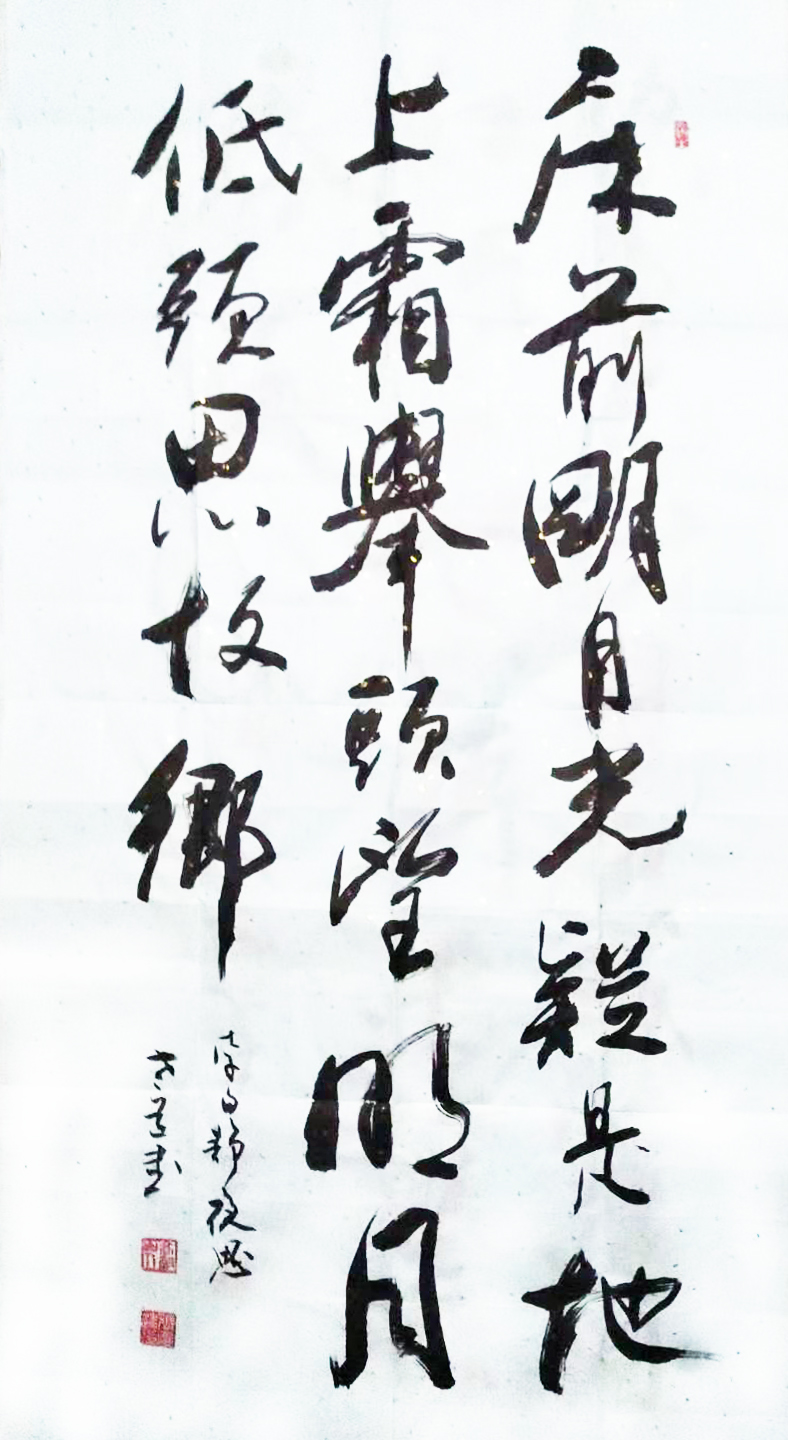 床前明月光疑是地
上霜舉頭望明月
低頭思故鄉
李白靜夜思
書